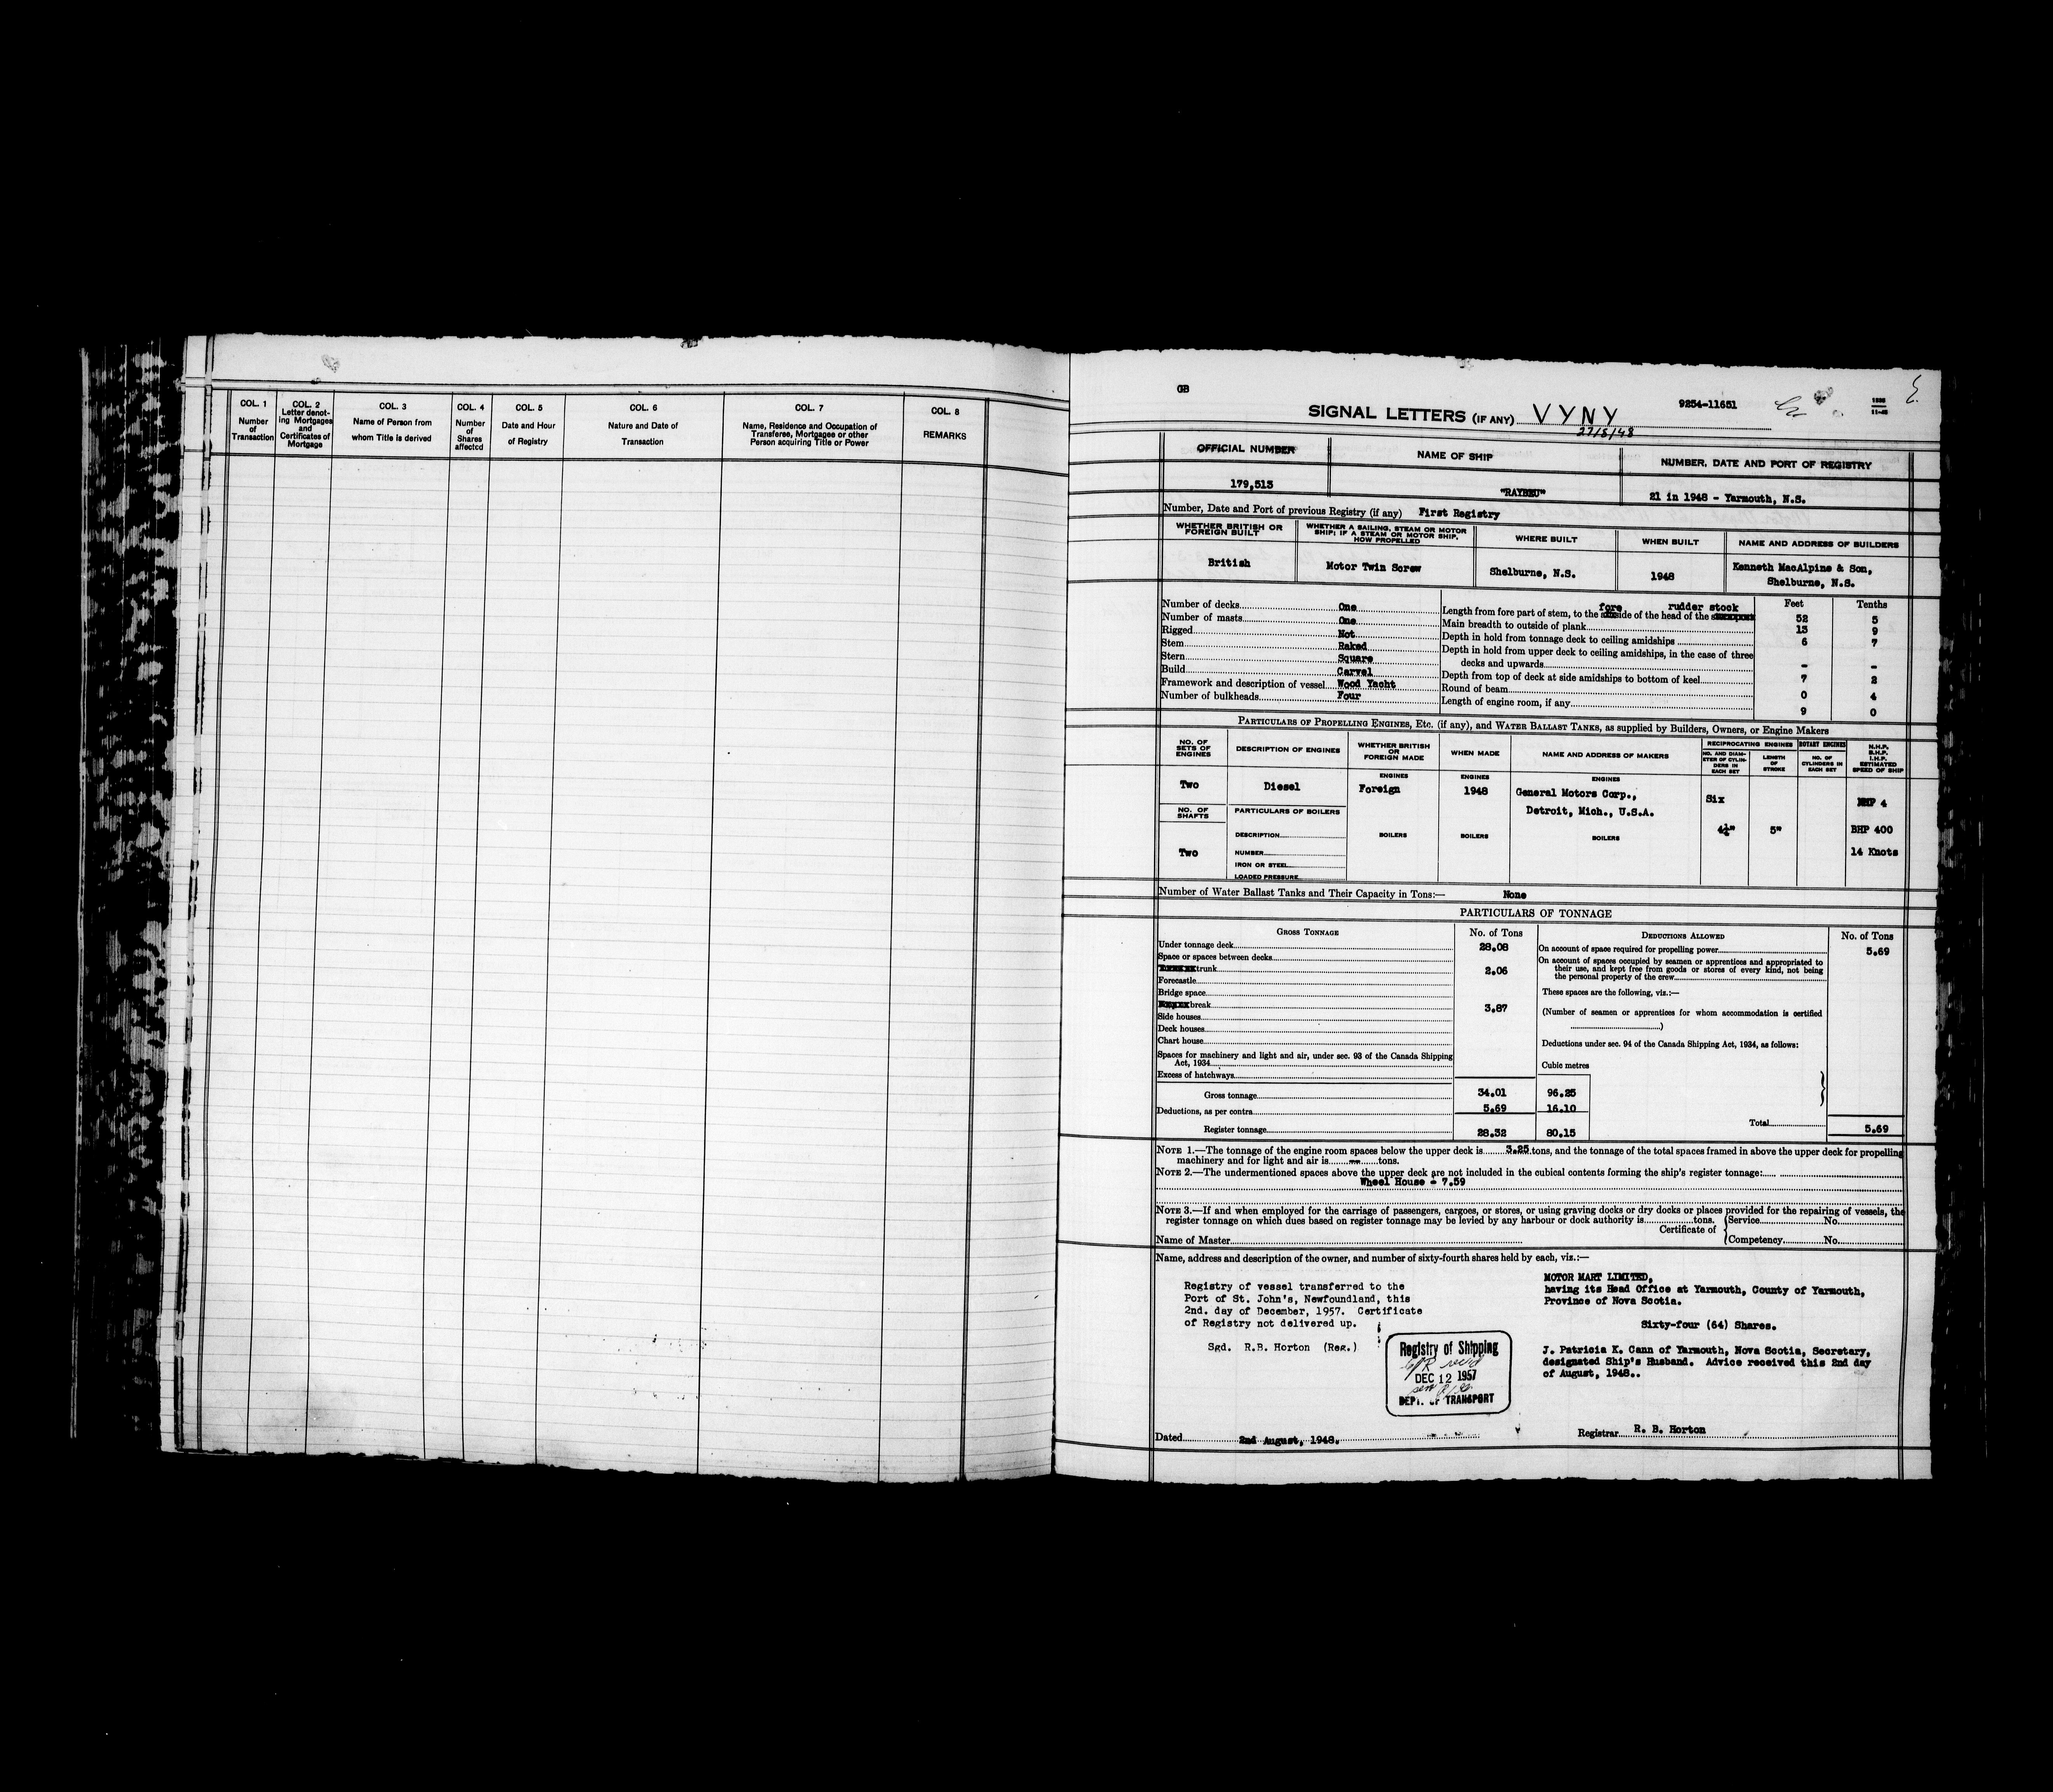 COL. 1
Number
of
Transaction
COL. 2
Letter denot-
ing Mortgages
and
Certificates of
Mortgage
COL. 3
Name of Person from
whom Title is derived
COL. 4
Number
of
Shares
affected
COL. 5
Date and Hour
of Registry
COL. 6
Nature and Date of
Transaction
COL. 7
Name, Residence and Occupation of
Transferee, Mortgagee or other
Person acquiring Title or Power
COL. 8
REMARKS
GB
9254-11651
SIGNAL LETTERS (IF ANY) VYNY
27/8/48
OFFICIAL NUMBER
NAME OF SHIP
NUMBER, DATE AND PORT OF REGISTRY
179,513
21 in 1948 - Yarmouth, N.S.
Number, Date and Port of previous Registry (if any) First Registry
WHETHER BRITISH OR
FOREIGN BUILT
WHETHER A SAILING, STEAM OR MOTOR
SHIP; IF A STEAM OR MOTOR SHIP,
HOW PROPELLED
WHERE BUILT
WHEN BUILT
NAME AND ADDRESS OF BUILDERS
British
Motor Twin Screw
Shelburne, N.S.
1948
Kenneth MacAlpine & Son,
Shelburne, N.S.
Number of decks One
Number of masts One
Rigged Not
Stem Raked
Stern Square
Build Carvel
Framework and description of vessel Wood Yacht
Number of bulkheads Four
Feet Tenths
fore rudder stock
Length from fore part of stem, to the side of the head of the 52 5
Main breadth to outside of plank 13 9
Depth in hold from tonnage deck to ceiling amidships 6 7
Depth in hold from upper deck to ceiling amidships, in the case of three
decks and upwards - -
Depth from top of deck at side amidships to bottom of keel 7 2
Round of beam 0 4
Length of engine room, if any 9 0
PARTICULARS OF PROPELLING ENGINES, ETC. (if any), and WATER BALLAST TANKS, as supplied by Builders, Owners, or Engine Makers
NO. OF
SETS OF
ENGINES
DESCRIPTION OF ENGINES
WHETHER BRITISH
OR
FOREIGN MADE
WHEN MADE
NAME AND ADDRESS OF MAKERS
RECIPROCATING ENGINES
NO. AND DIAM-
ETER OF CYLIN-
DERS IN
EACH SET
LENGTH
OF
STROKE
ROTARY ENGINES
NO. OF
CYLINDERS IN
EACH SET
N.H.P.
B.H.P.
I.H.P.
ESTIMATED
SPEED OF SHIP
ENGINES ENGINES ENGINES
Two Diesel Foreign 1948 General Motors Corp.,
Detroit, Mich., U.S.A.
Six
4¼" 5"
NHP 4
BHP 400
14 Knots
NO. OF
SHAFTS
PARTICULARS OF BOILERS
Two
DESCRIPTION
NUMBER
IRON OR STEEL
LOADED PRESSURE
BOILERS BOILERS BOILERS
Number of Water Ballast Tanks and Their Capacity in Tons:— None
PARTICULARS OF TONNAGE
GROSS TONNAGE No. of Tons
Under tonnage deck 28.08
Space or spaces between decks
trunk 2.06
Forecastle
Bridge space
break 3.87
Side houses
Deck houses
Chart house
Spaces for machinery and light and air, under sec. 93 of the Canada Shipping
Act, 1934
Excess of hatchways
Gross tonnage 34.01 96.25
Deductions, as per contra 5.69 16.10
Register tonnage 28.32 80.15
DEDUCTIONS ALLOWED No. of Tons
On account of space required for propelling power 5.69
On account of spaces occupied by seamen or apprentices and appropriated to
their use, and kept free from goods or stores of every kind, not being
the personal property of the crew
These spaces are the following, viz.:—
(Number of seamen or apprentices for whom accommodation is certified
)
Deductions under sec. 94 of the Canada Shipping Act, 1934, as follows:
Cubic metres
Total 5.69
NOTE 1.—The tonnage of the engine room spaces below the upper deck is 3.25 tons, and the tonnage of the total spaces framed in above the upper deck for propelling
machinery and for light and air is -- tons.
NOTE 2.—The undermentioned spaces above the upper deck are not included in the cubical contents forming the ship's register tonnage:
Wheel House - 7.59
NOTE 3.—If and when employed for the carriage of passengers, cargoes, or stores, or using graving docks or dry docks or places provided for the repairing of vessels, the
register tonnage on which dues based on register tonnage may be levied by any harbour or dock authority is tons.
Name of Master
Certificate of
Service No.
Competency No.
Name, address and description of the owner, and number of sixty-fourth shares held by each, viz.:—
Registry of vessel transferred to the
Port of St. John's, Newfoundland, this
2nd. day of December, 1957. Certificate
of Registry not delivered up.
Sgd. R.B. Horton (Reg.)
Registry of Shipping
DEC 12 1957
DEPT. OF TRANSPORT
MOTOR MART LIMITED,
having its Head Office at Yarmouth, County of Yarmouth,
Province of Nova Scotia.
Sixty-four (64) Shares.
J. Patricia K. Cann of Yarmouth, Nova Scotia, Secretary,
designated Ship's Husband. Advice received this 2nd day
of August, 1948..
Dated 2nd August, 1948.
Registrar R. B. Horton